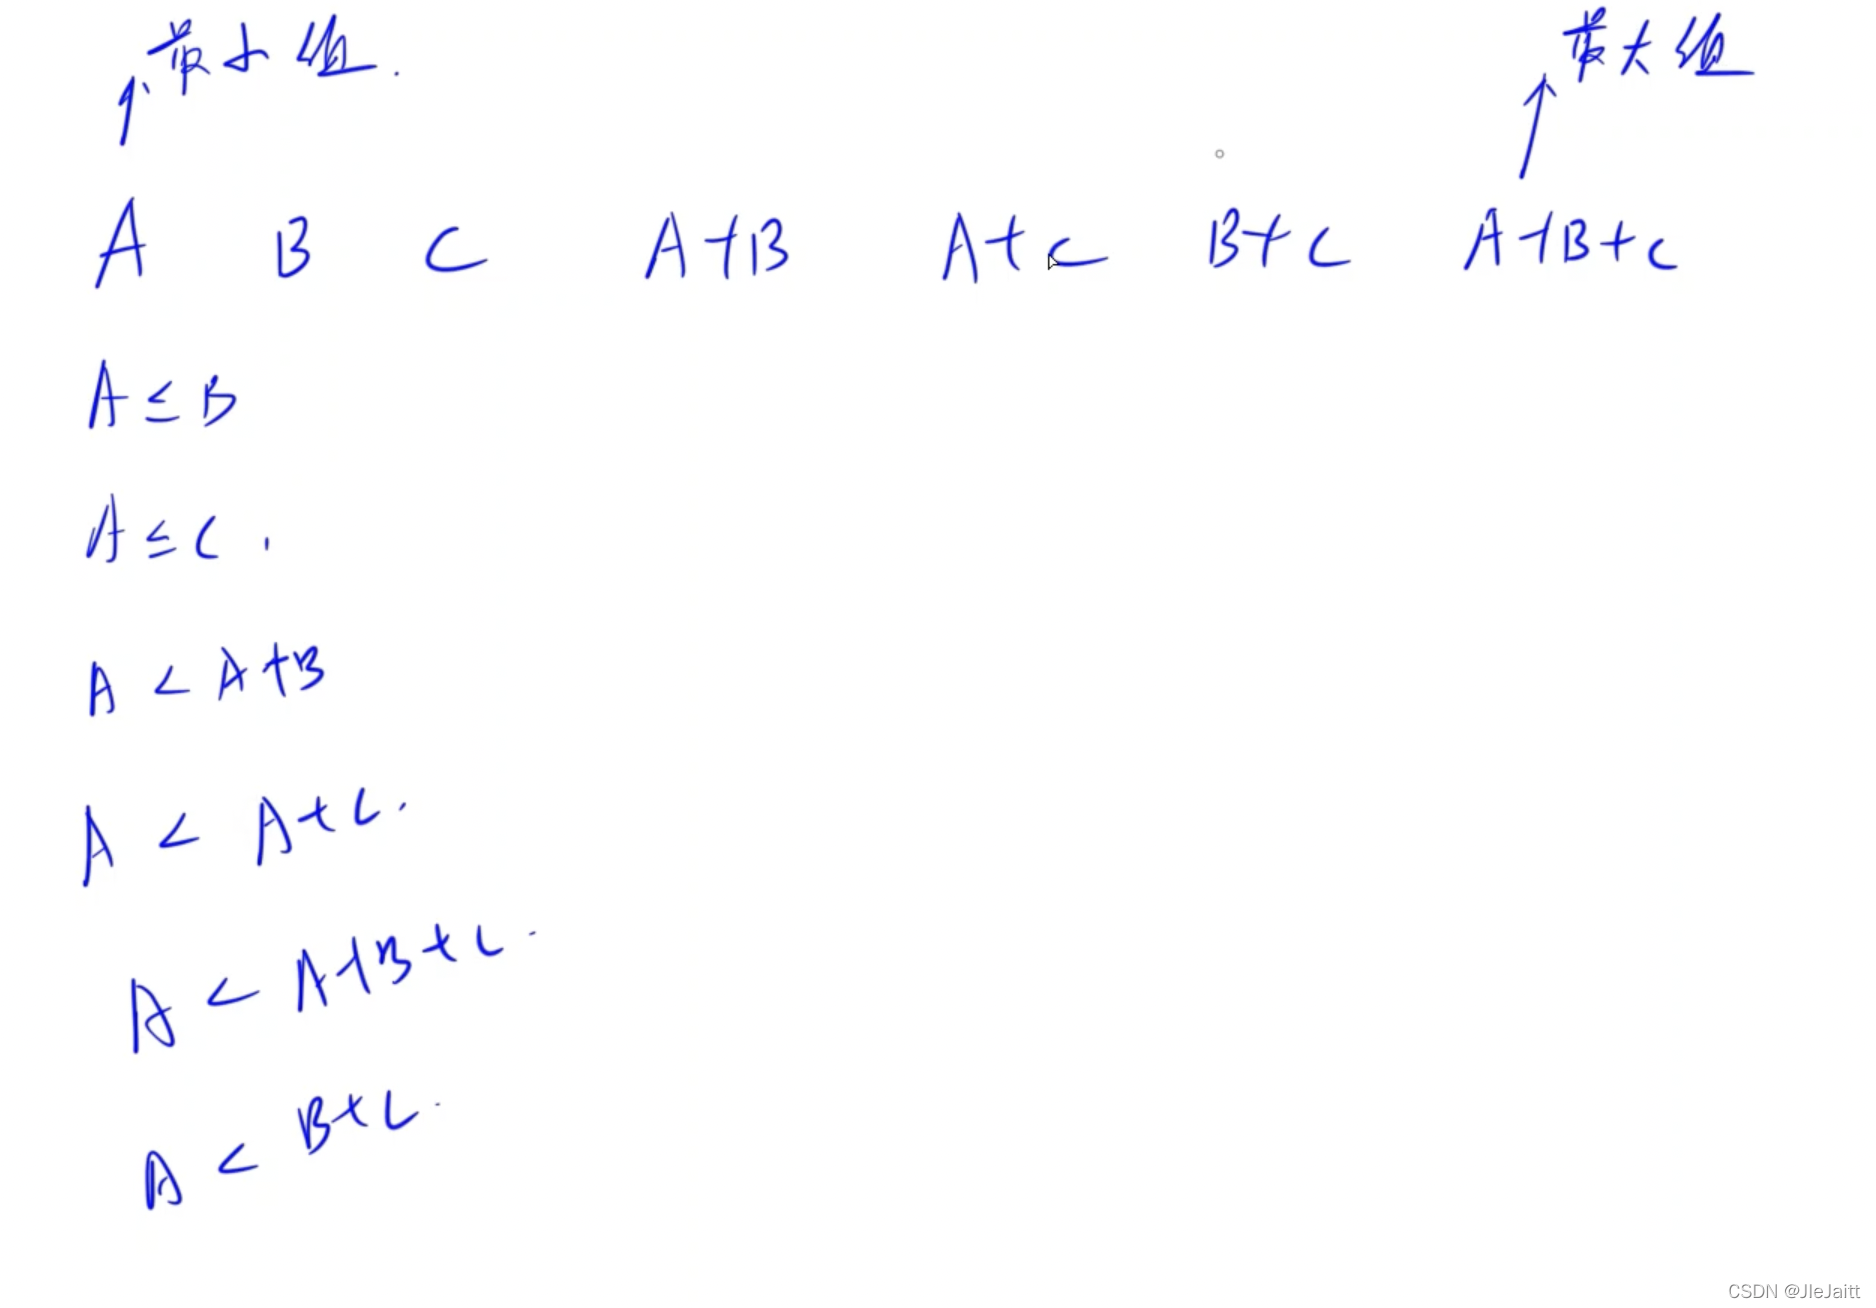 最小值.
最大值
A B C A+B A+C B+C A+B+C
A≤B
A≤C.
A < A+B
A < A+C.
A < A+B+C.
A < B+C.
CSDN @JleJaitt